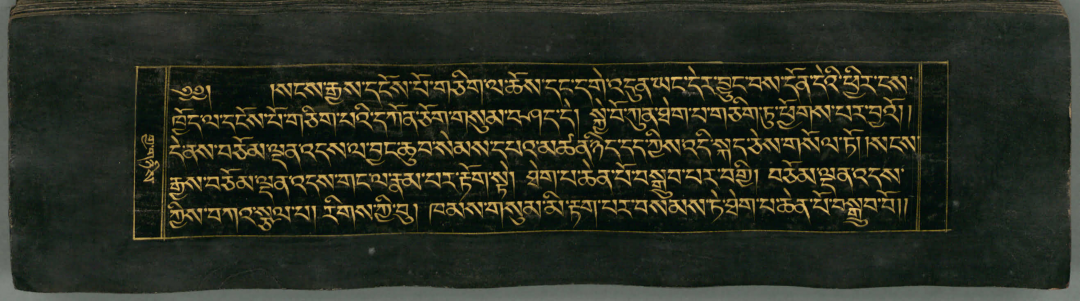 ༄༅། །སངས་རྒྱས་དངོས་པོ་གཅིག་ལ་ཆོས་དང་དགེ་འདུན་ཡང་དེར་བྱུང་བས་དོན་དེའི་ཕྱིར་ངས་
ཁྱོད་ལ་དངོས་པོ་གཅིག་པའི་དཀོན་ཅོག་གསུམ་བཤད་དེ། སྐྱེ་བོ་ཀུན་ཐེག་པ་གཅིག་ཏུ་ཕྱོགས་པར་བྱའོ།།
དེ་ནས་བཅོམ་ལྡན་འདས་ལ་བྱང་ཆུབ་སེམས་དཔའ་མཚན་ཉིད་དད་ཀྱིས་འདི་སྐད་ཅེས་གསོལ་ཏོ། །སངས་
རྒྱས་བཅོམ་ལྡན་འདས་གང་ལ་རྣམ་པར་རྟོག་སྟེ། ཐེག་པ་ཆེན་པོ་བསྒྲུབ་པར་བགྱི། བཅོམ་ལྡན་འདས་
ཀྱིས་བཀའ་སྩལ་པ། རིགས་ཀྱི་བུ། ཁམས་གསུམ་མི་རྟག་པར་བསམས་ཏེ་ཐེག་པ་ཆེན་པོ་བསྒྲུབ་བོ།།